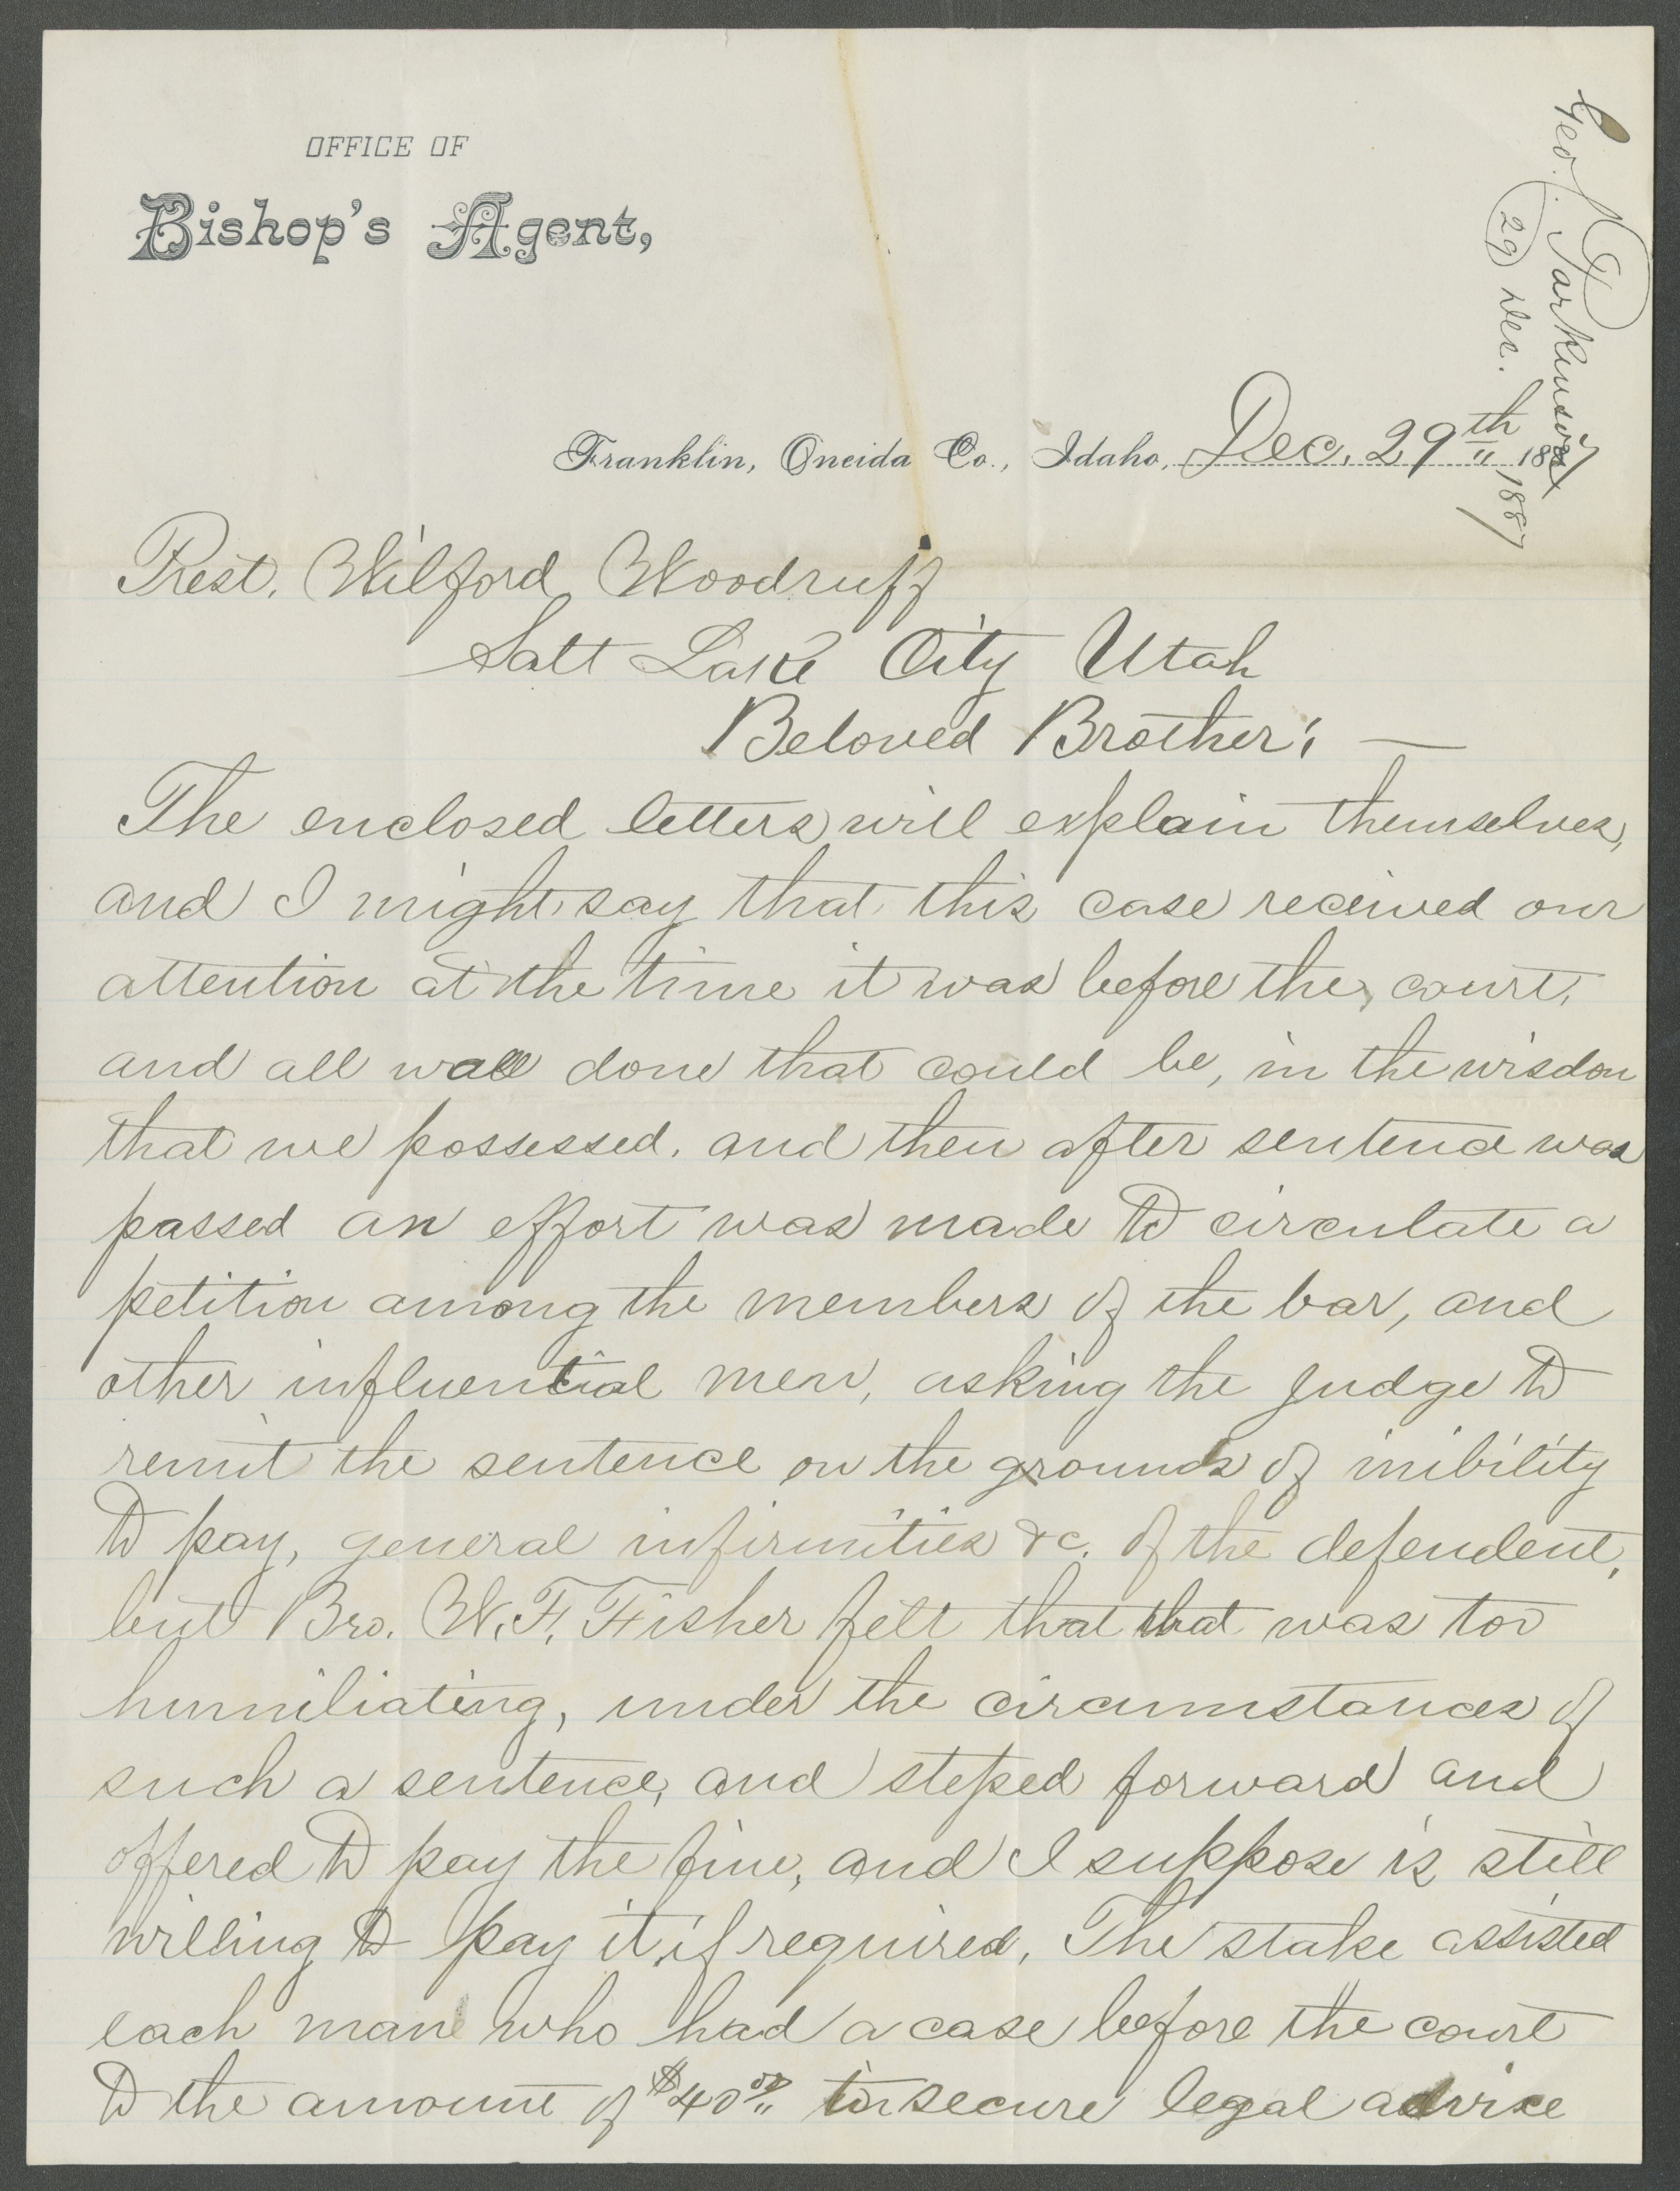 OFFICE OF
Bishop's Agent,
Geo. C. Parkinson
29 Dec. 1887
Franklin, Oneida Co., Idaho, Dec. 29th 1887
Prest. Wilford Woodruff
Salt Lake City Utah
Beloved Brother; —
The enclosed letters will explain themselves,
and I might say that this case received our
attention at the time it was before the court,
and all was done that could be, in the wisdom
that we possessed. and then after sentence was
passed an effort was made to circulate a
petition among the members of the bar, and
other influential men, asking the judge to
remit the sentence on the grounds of inibility
to pay, general infirmities &c. of the defendent,
but Bro. W. F. Fisher felt that that was too
humiliating, under the circumstances of
such a sentence, and steped forward and
offered to pay the fine, and I suppose is still
willing to pay it if required, The stake assisted
each man who had a case before the court
to the amount of $40.00 to secure legal advice